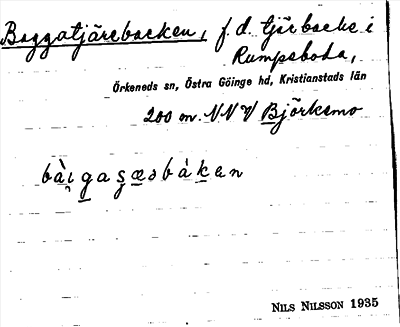 Baggatjärebacken, f.d. tjärbacke i
Rumpeboda,
Örkeneds sn, Östra Göinge hd, Kristianstads län
200 m. NNV Björksmo
bàịgaʂæsbákan
NILS NILSSON 1935